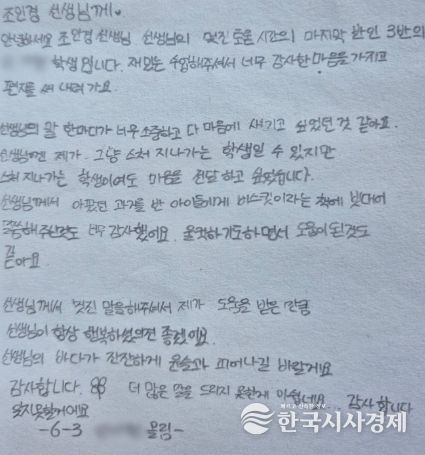 조인경 선생님께
안녕하세요 조인경 선생님 선생님의 멋진 도움 시간의 마지막 반인 3반의
학생입니다. 재밌는 수업해주셔서 너무 감사한 마음을 가지고
편지를 써 내려가요.
선생님의 말 한마디가 너무 소중하고 다 마음에 새기고 싶었던 것 같아요.
선생님껜 제가 그냥 스쳐 지나가는 학생일 수 있지만
스쳐 지나가는 학생이여도 마음을 전달하고 싶었습니다.
선생님께서 아팠던 과거를 반 아이들에게 비스킷이라는 책에 빗대어
말씀해주신것도 너무 감사했어요. 울컥하기도하면서 도움이된것도
같아요
선생님께서 멋진 말을해주셔서 제가 도움을 받은 만큼
선생님이 항상 행복하셨으면 좋겠어요.
선생님의 바다가 잔잔하게 윤슬과 피어나길 바랄게요
감사합니다. 더 많은 말을 드리지 못한게 아쉽네요 감사합니다
잊지못할거에요
-6-3 올림-
한국시사경제